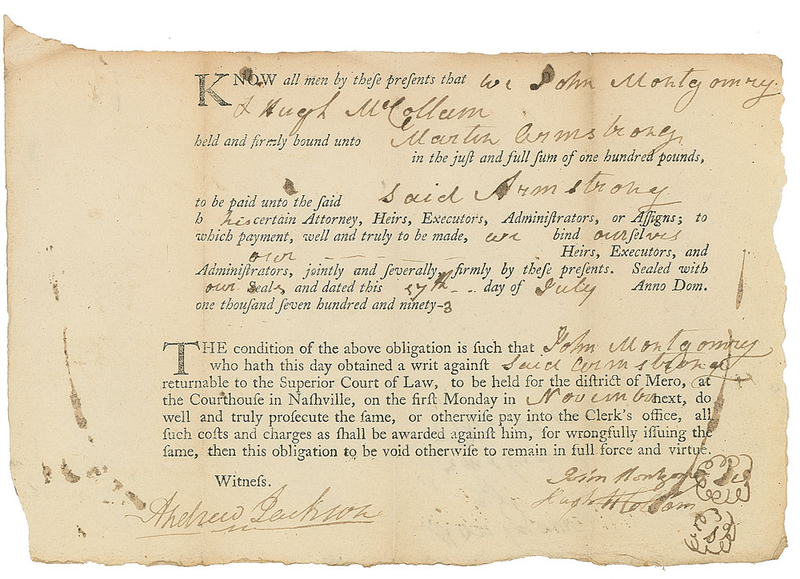 KNOW all men by theſe preſents that we John Montgomry
& Hugh McCollam
held and firmly bound unto Martin Armstrong
in the juſt and full ſum of one hundred pounds,
to be paid unto the ſaid said Armstrong
h his certain Attorney, Heirs, Executors, Adminiſtrators, or Aſſigns; to
which payment, well and truly to be made, we bind ourſelves
our Heirs, Executors, and
Adminiſtrators, jointly and ſeverally firmly by theſe preſents. Sealed with
our Seals and dated this day of July Anno Dom.
one thouſand ſeven hundred and ninety-3
THE condition of the above obligation is ſuch that John Montgomry
who hath this day obtained a writ againſt Said Armstrong
returnable to the Superior Court of Law, to be held for the diſtrict of Mero, at
the Courthouſe in Naſhville, on the firſt Monday in November next, do
well and truly proſecute the ſame, or otherwiſe pay into the Clerk's office, all
ſuch coſts and charges as ſhall be awarded againſt him, for wrongfully iſſuing the
ſame, then this obligation to be void otherwiſe to remain in full force and virtue.
Witneſs.
John
Hugh McCollam
Andrew Jackson